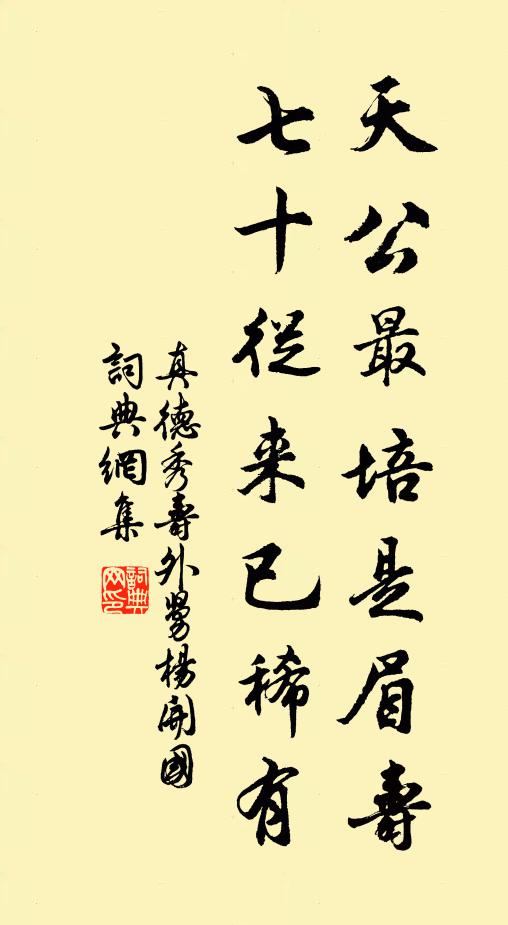 天公最培是眉壽
七十從来已稀有
真德秀壽外舅楊開國
詞典網集
詞典網印